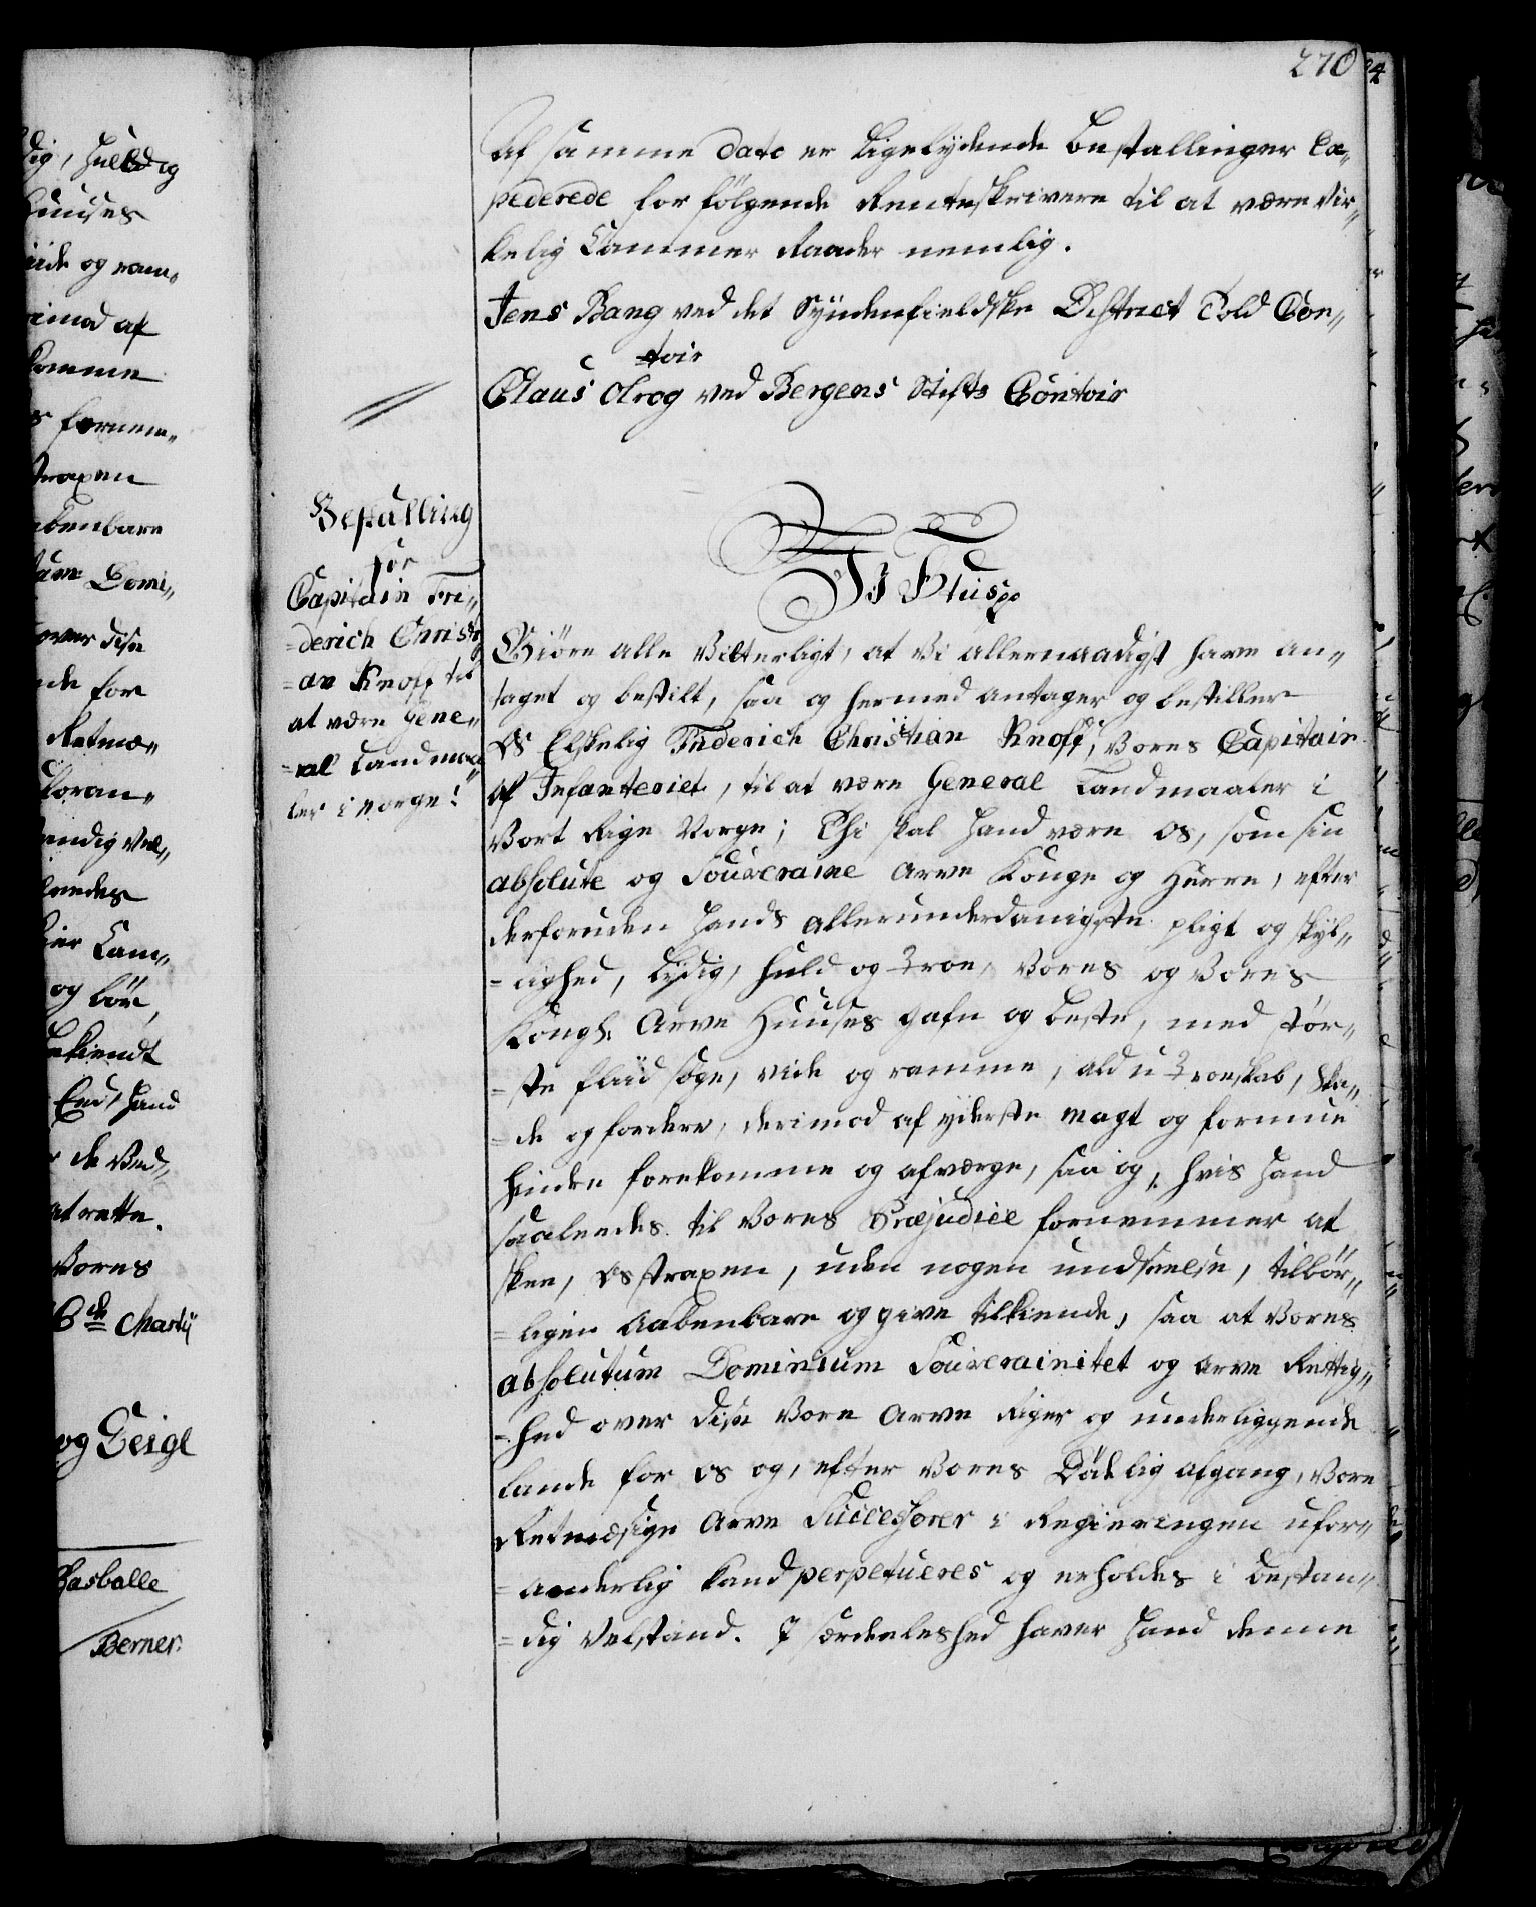 270
Af samme dato er Ligelydende Bestallinger Ex„
pederede for følgende Renteskrivere til at være Vir„
kelig Cammer Raader nemlig.
Jens Bang ved det Syndenfieldske District Told Con„
toir
Claus Olrog ved Bergens Stifts Contoir
Bestalling
for
Capitain Fri„
=derich Christi
=an Knoff til
at være Gene„
=ral Landmaa„
ler i Norge!
Giøre alle Vitterligt, at Vi allernaadigst have an„
taget og bestilt, saa og hermed antager og bestiller
Os Elskelig Friderich Christian Knoff, Vores Capitain
af Infanteriet, til at være General Landmaaler i
Vort Rige Norge; Thi skal Hand være Os, som sin
absolute og Souveraine Arve Konge og Herre, efter
derforuden Hands allerunderdanigste pligt og skyl„
=dighed, Lydig, Huld og Troe, Vores og Vores
Kongl. Arve Huuses gafn og beste, med stør„
=ste fliid søge, vide og ramme, ald u Troeskab, ska„
=de og fordere, derimod af yderste magt og formue
hindre forekomme og afværge, saa og, hvis Hand
saaleedes til Vores Præjudice fornemmer at
skee, Os straxen, uden nogen undseelse, tilbør„
=ligen Aabenbare og give tilkiende, saa at Vores
absolutum Dominium Souverainitet og Arve Rettig„
=hed over disse Vore Arve Riger og underliggende
Lande for Os og, efter Vores Dødelig afgang, Vore
Retmæsige Arve Successorer i Regieringen ufor„
=anderlig kand perpetueres og erholdes i bestan„
=dig Velstand. I særdeleshed haver Hand denne